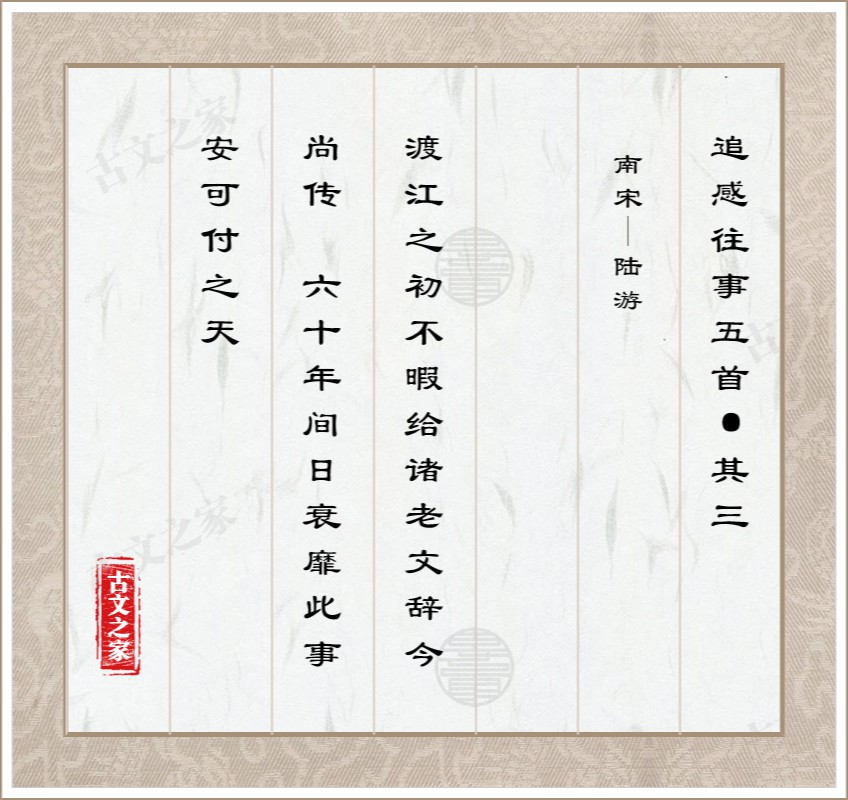 追感往事五首●其三
南宋—陆游
渡江之初不暇给诸老文辞今
尚传 六十年间日衰靡此事
安可付之天
古文之家
古文之家
文之家
古